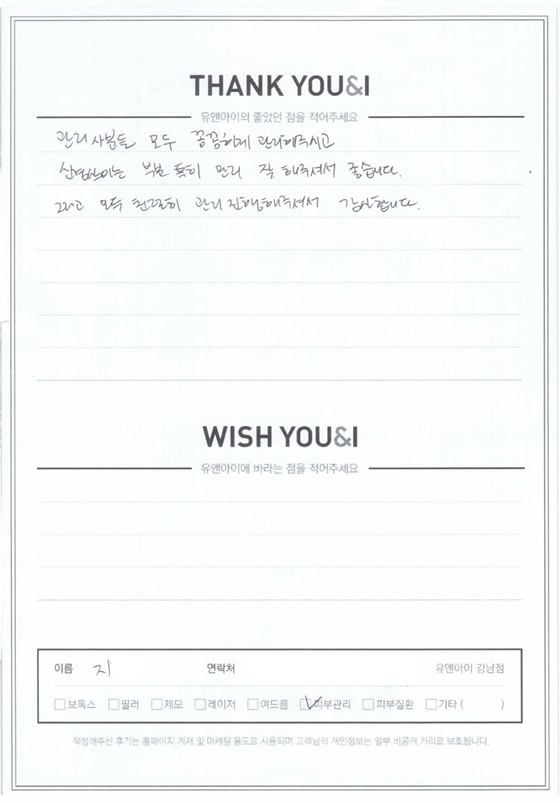 THANK YOU&I
유앤아이의 좋았던 점을 적어주세요
관리사분들 모두 꼼꼼하게 관리해주시고
부분 특히 관리 잘 해주셔서 좋습니다.
그리고 모두 친절히 관리 진행해주셔서 감사합니다.
WISH YOU&I
유앤아이에 바라는 점을 적어주세요
이름 지 연락처 유앤아이 강남점
보톡스 필러 제모 레이저 여드름 피부관리 피부질환 기타 ( )
작성해주신 후기는 홈페이지 게재 및 마케팅 용도로 사용되며 고객님의 개인정보는 일부 비공개 처리로 보호됩니다.